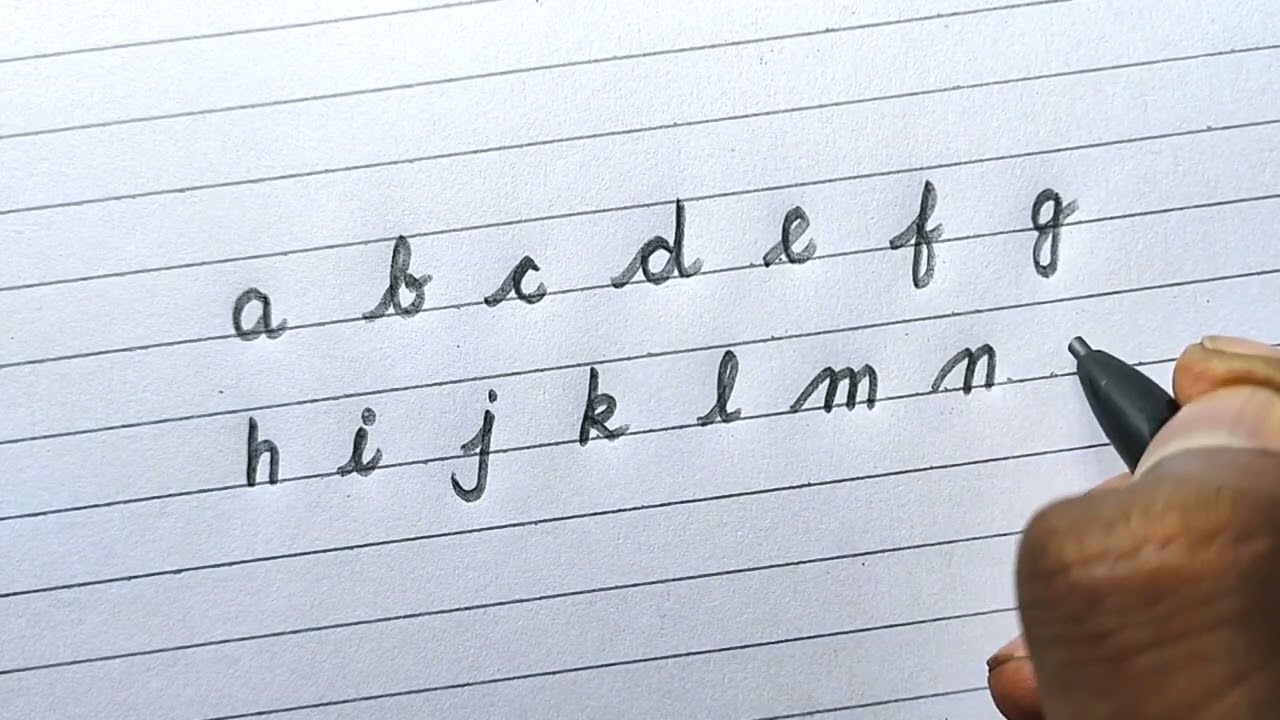 a b c d e f g
h i j k l m n